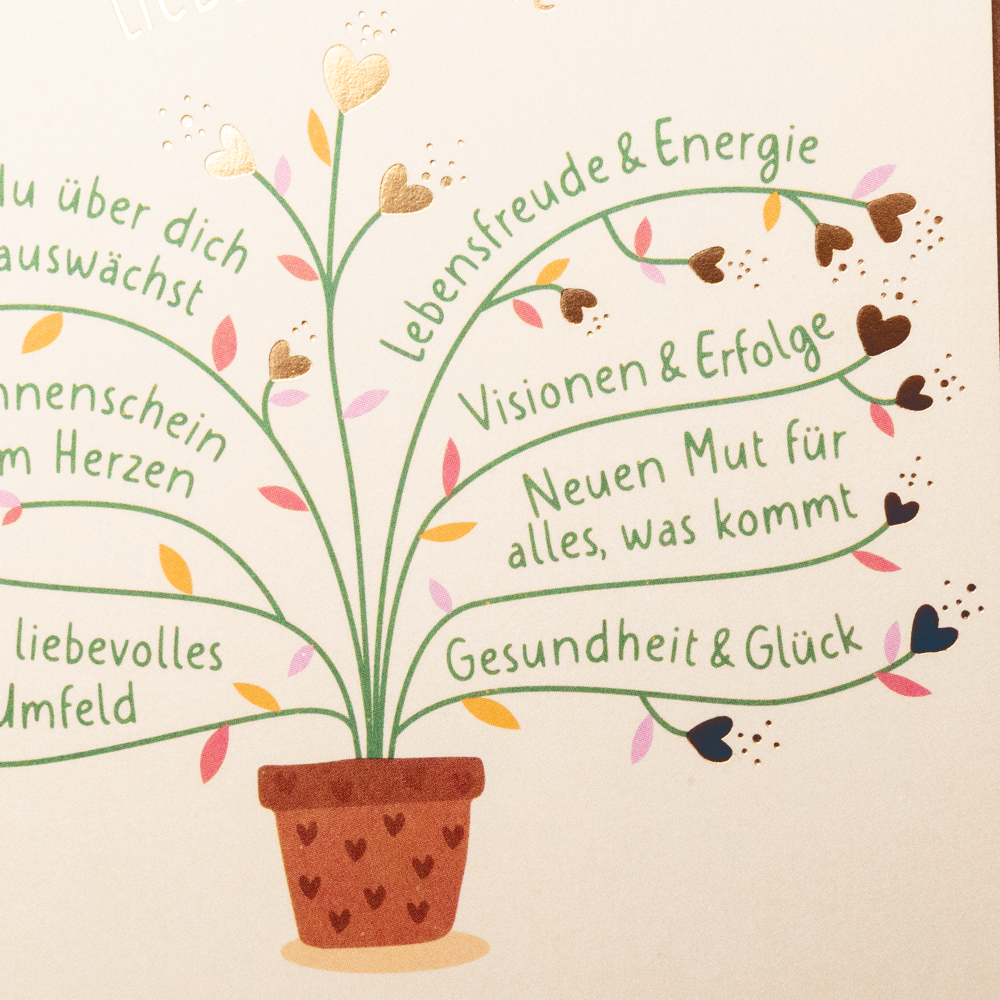 über dich
auswächst
Herzen
liebevolles
Umfeld
Lebensfreude & Energie
Visionen & Erfolge
Neuen Mut für
alles, was kommt
Gesundheit & Glück